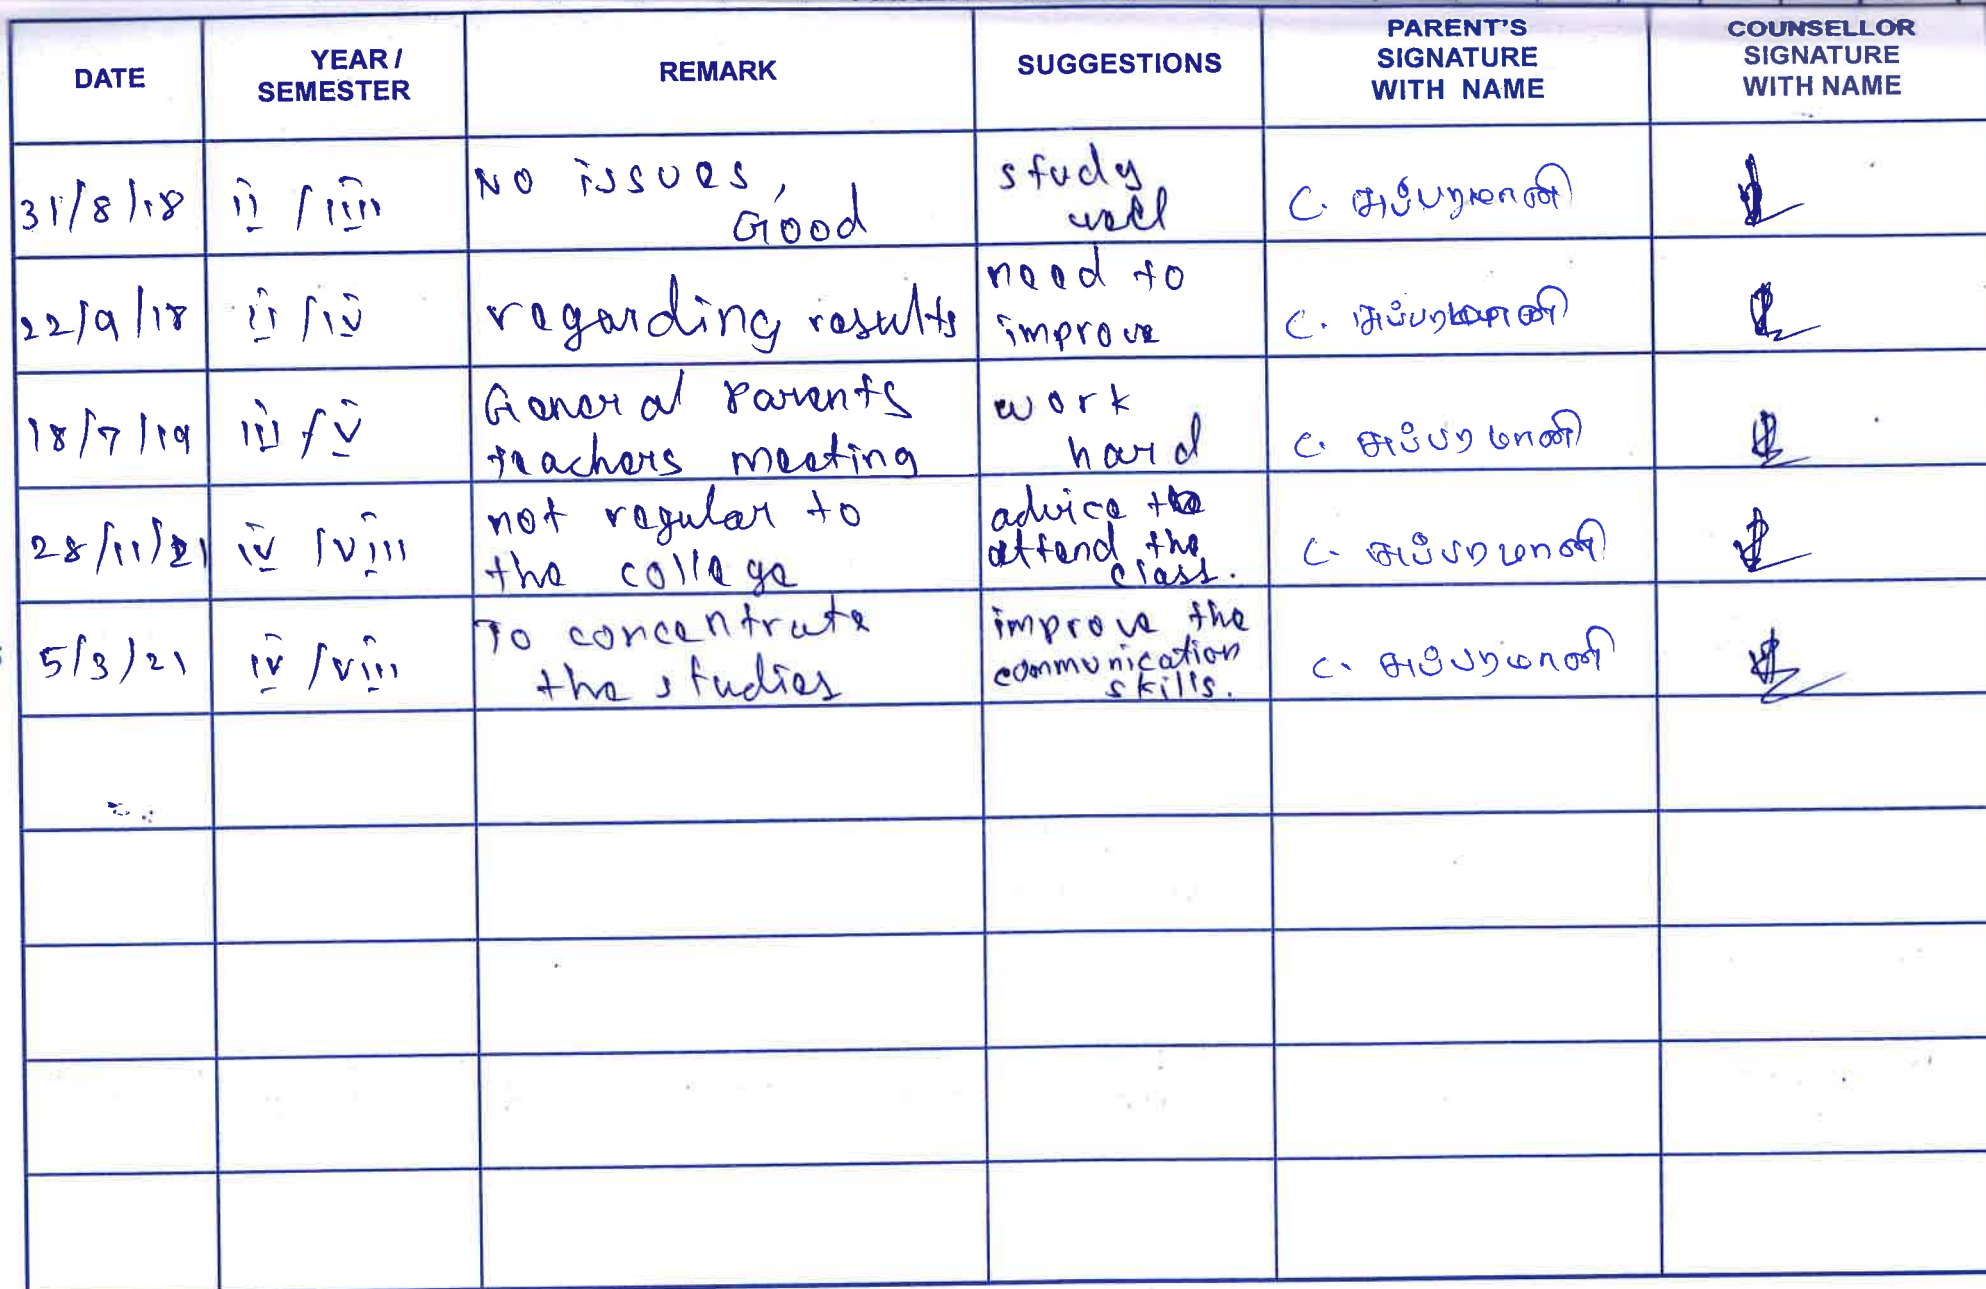 DATE
YEAR /
SEMESTER
REMARK
SUGGESTIONS
PARENT'S
SIGNATURE
WITH NAME
COUNSELLOR
SIGNATURE
WITH NAME
31/8/18
II / III
No issues,
Good
study
well
C. சுப்பரமானி
22/9/18
II / IV
regarding results
need to
improve
C. சுப்பரமானி
18/7/19
III / V
General Parents
teachers meeting
work
hard
C. சுப்பரமானி
28/11/21
IV / VIII
not regular to
the college
advice to
attend the
class.
C. சுப்பரமானி
5/3/21
IV / VIII
To concentrate
the studies
improve the
communication
skills.
C. சுப்பரமானி